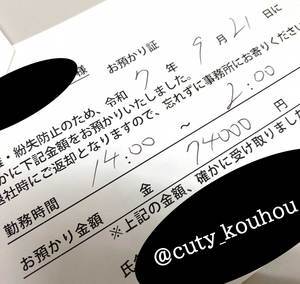 様 お預かり証
・紛失防止のため、令和 7 年 9 月 21 日に
かに下記金額をお預かりいたしました。
退社時にご返却となりますので、忘れずに事務所にお寄りくださ
勤務時間 14:00 ～ 2:00
お預かり金額 金 74000 円
※上記の金額、確かに受け取りました
氏
@cuty_kouhou